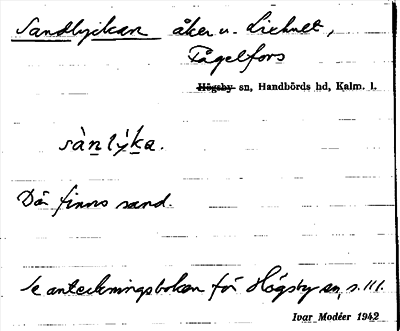 Sandlyckan åker u. Liehult,
Fågelfors
Högsby sn, Handbörds hd, Kalm. l.
sànlýka.
Där finns sand.
Se anteckningsboken för Högsby sn, s. 111.
Ivar Modéer 1942